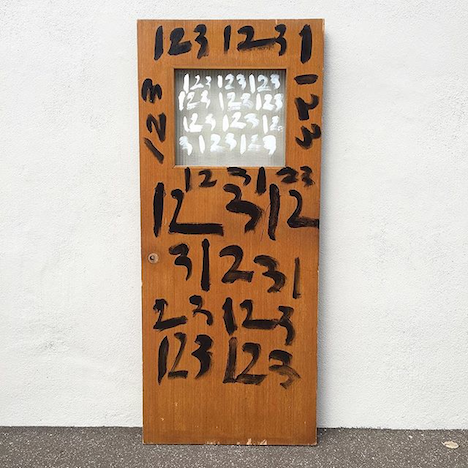 123 1231
123
123
123 123 123
123 123 123
123 123 12
3 123 123
123123
12 312
31231
23 123
123 123